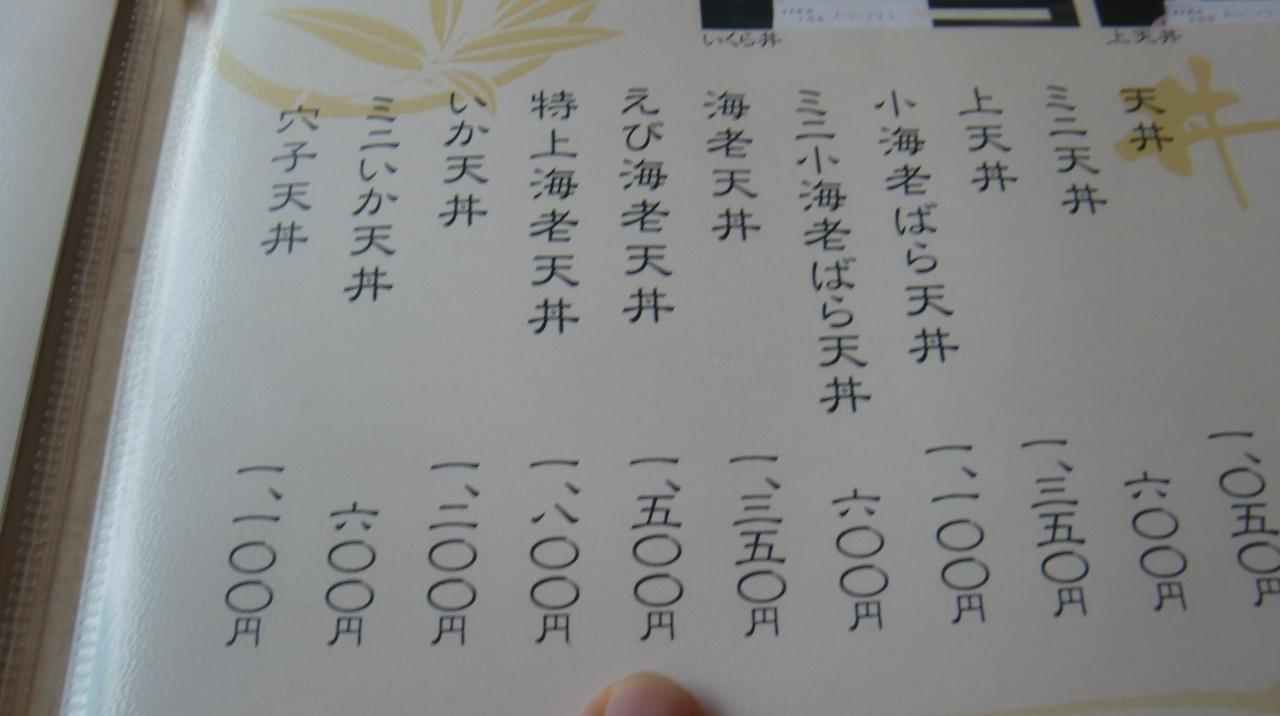 いくら丼
上天丼
丼
天丼 一、〇五〇円
ミニ天丼 六〇〇円
上天丼 一、三五〇円
小海老ばら天丼 一、一〇〇円
ミニ小海老ばら天丼 六〇〇円
海老天丼 一、三五〇円
えび海老天丼 一、五〇〇円
特上海老天丼 一、八〇〇円
いか天丼 一、二〇〇円
ミニいか天丼 六〇〇円
穴子天丼 一、一〇〇円